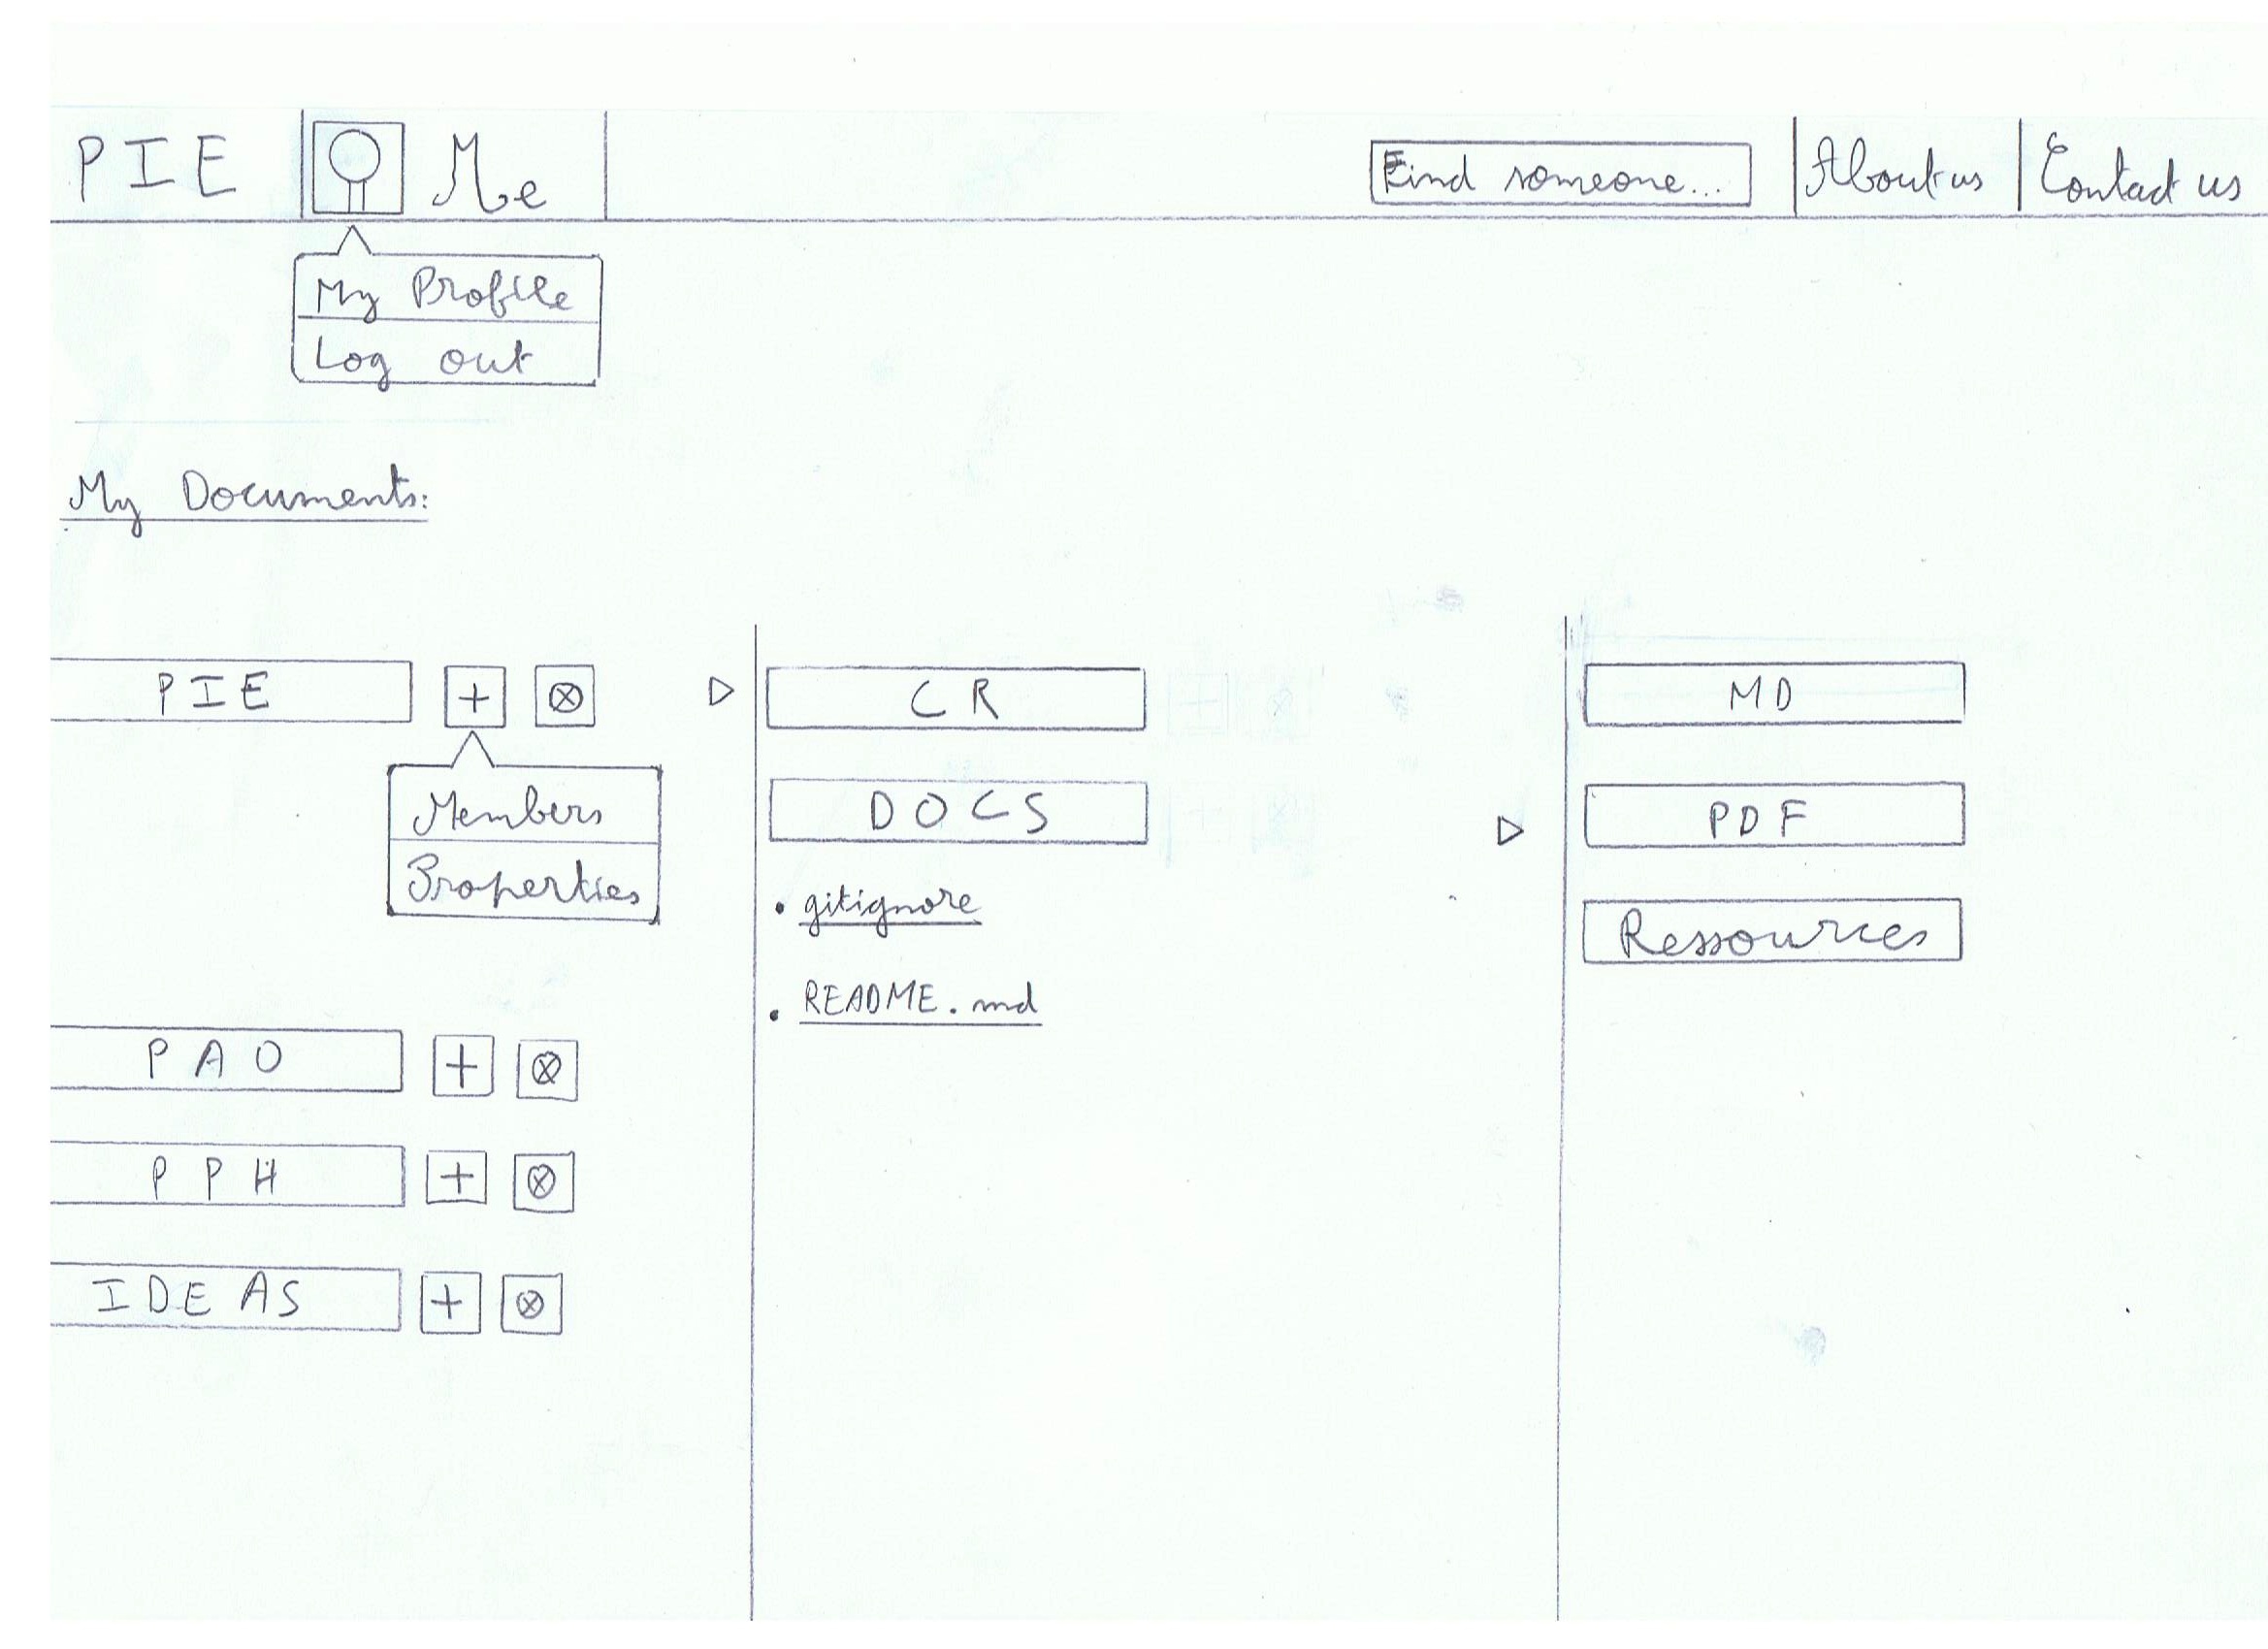 PIE Me Find someone... About us Contact us
My Profile
Log out
My Documents:
PIE + ⊗
Members
Properties
PAO + ⊗
PPH + ⊗
IDEAS + ⊗
CR
DOCS
• gitignore
• README.md
MD
PDF
Ressources